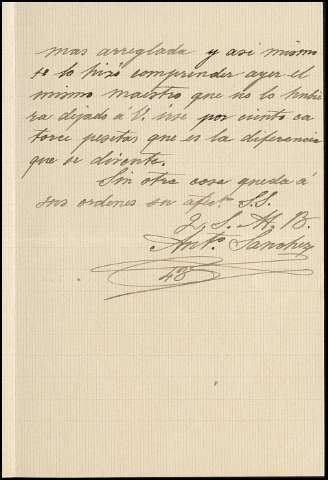 mas arreglada y asi mismo
se lo hizó comprender ayer el
mismo maestro que no lo hubie
ra dejado á V. irse por ciento ca
torce pesetas que es la diferencia
que se divente.
Sin otra cosa queda á
sus ordenes su afect.mo S.S.
Q. S. M. B.
Ant.o Sanchez
48